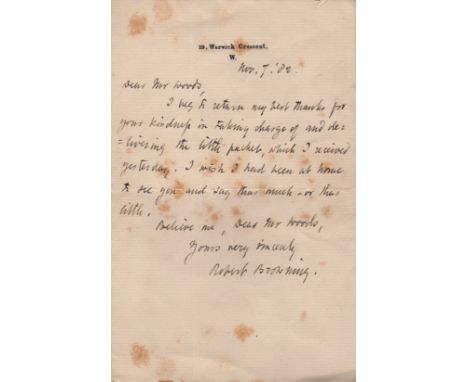 19, Warwick Crescent,
W.
Nov. 7. '82.
Dear Mr Woods,
I beg to return my best thanks for
your kindness in taking charge of and de=
=livering the little packet, which I received
yesterday. I wish I had been at home
to see you and say thus much - or thus
little.
Believe me, Dear Mr Woods,
Yours very sincerely
Robert Browning.